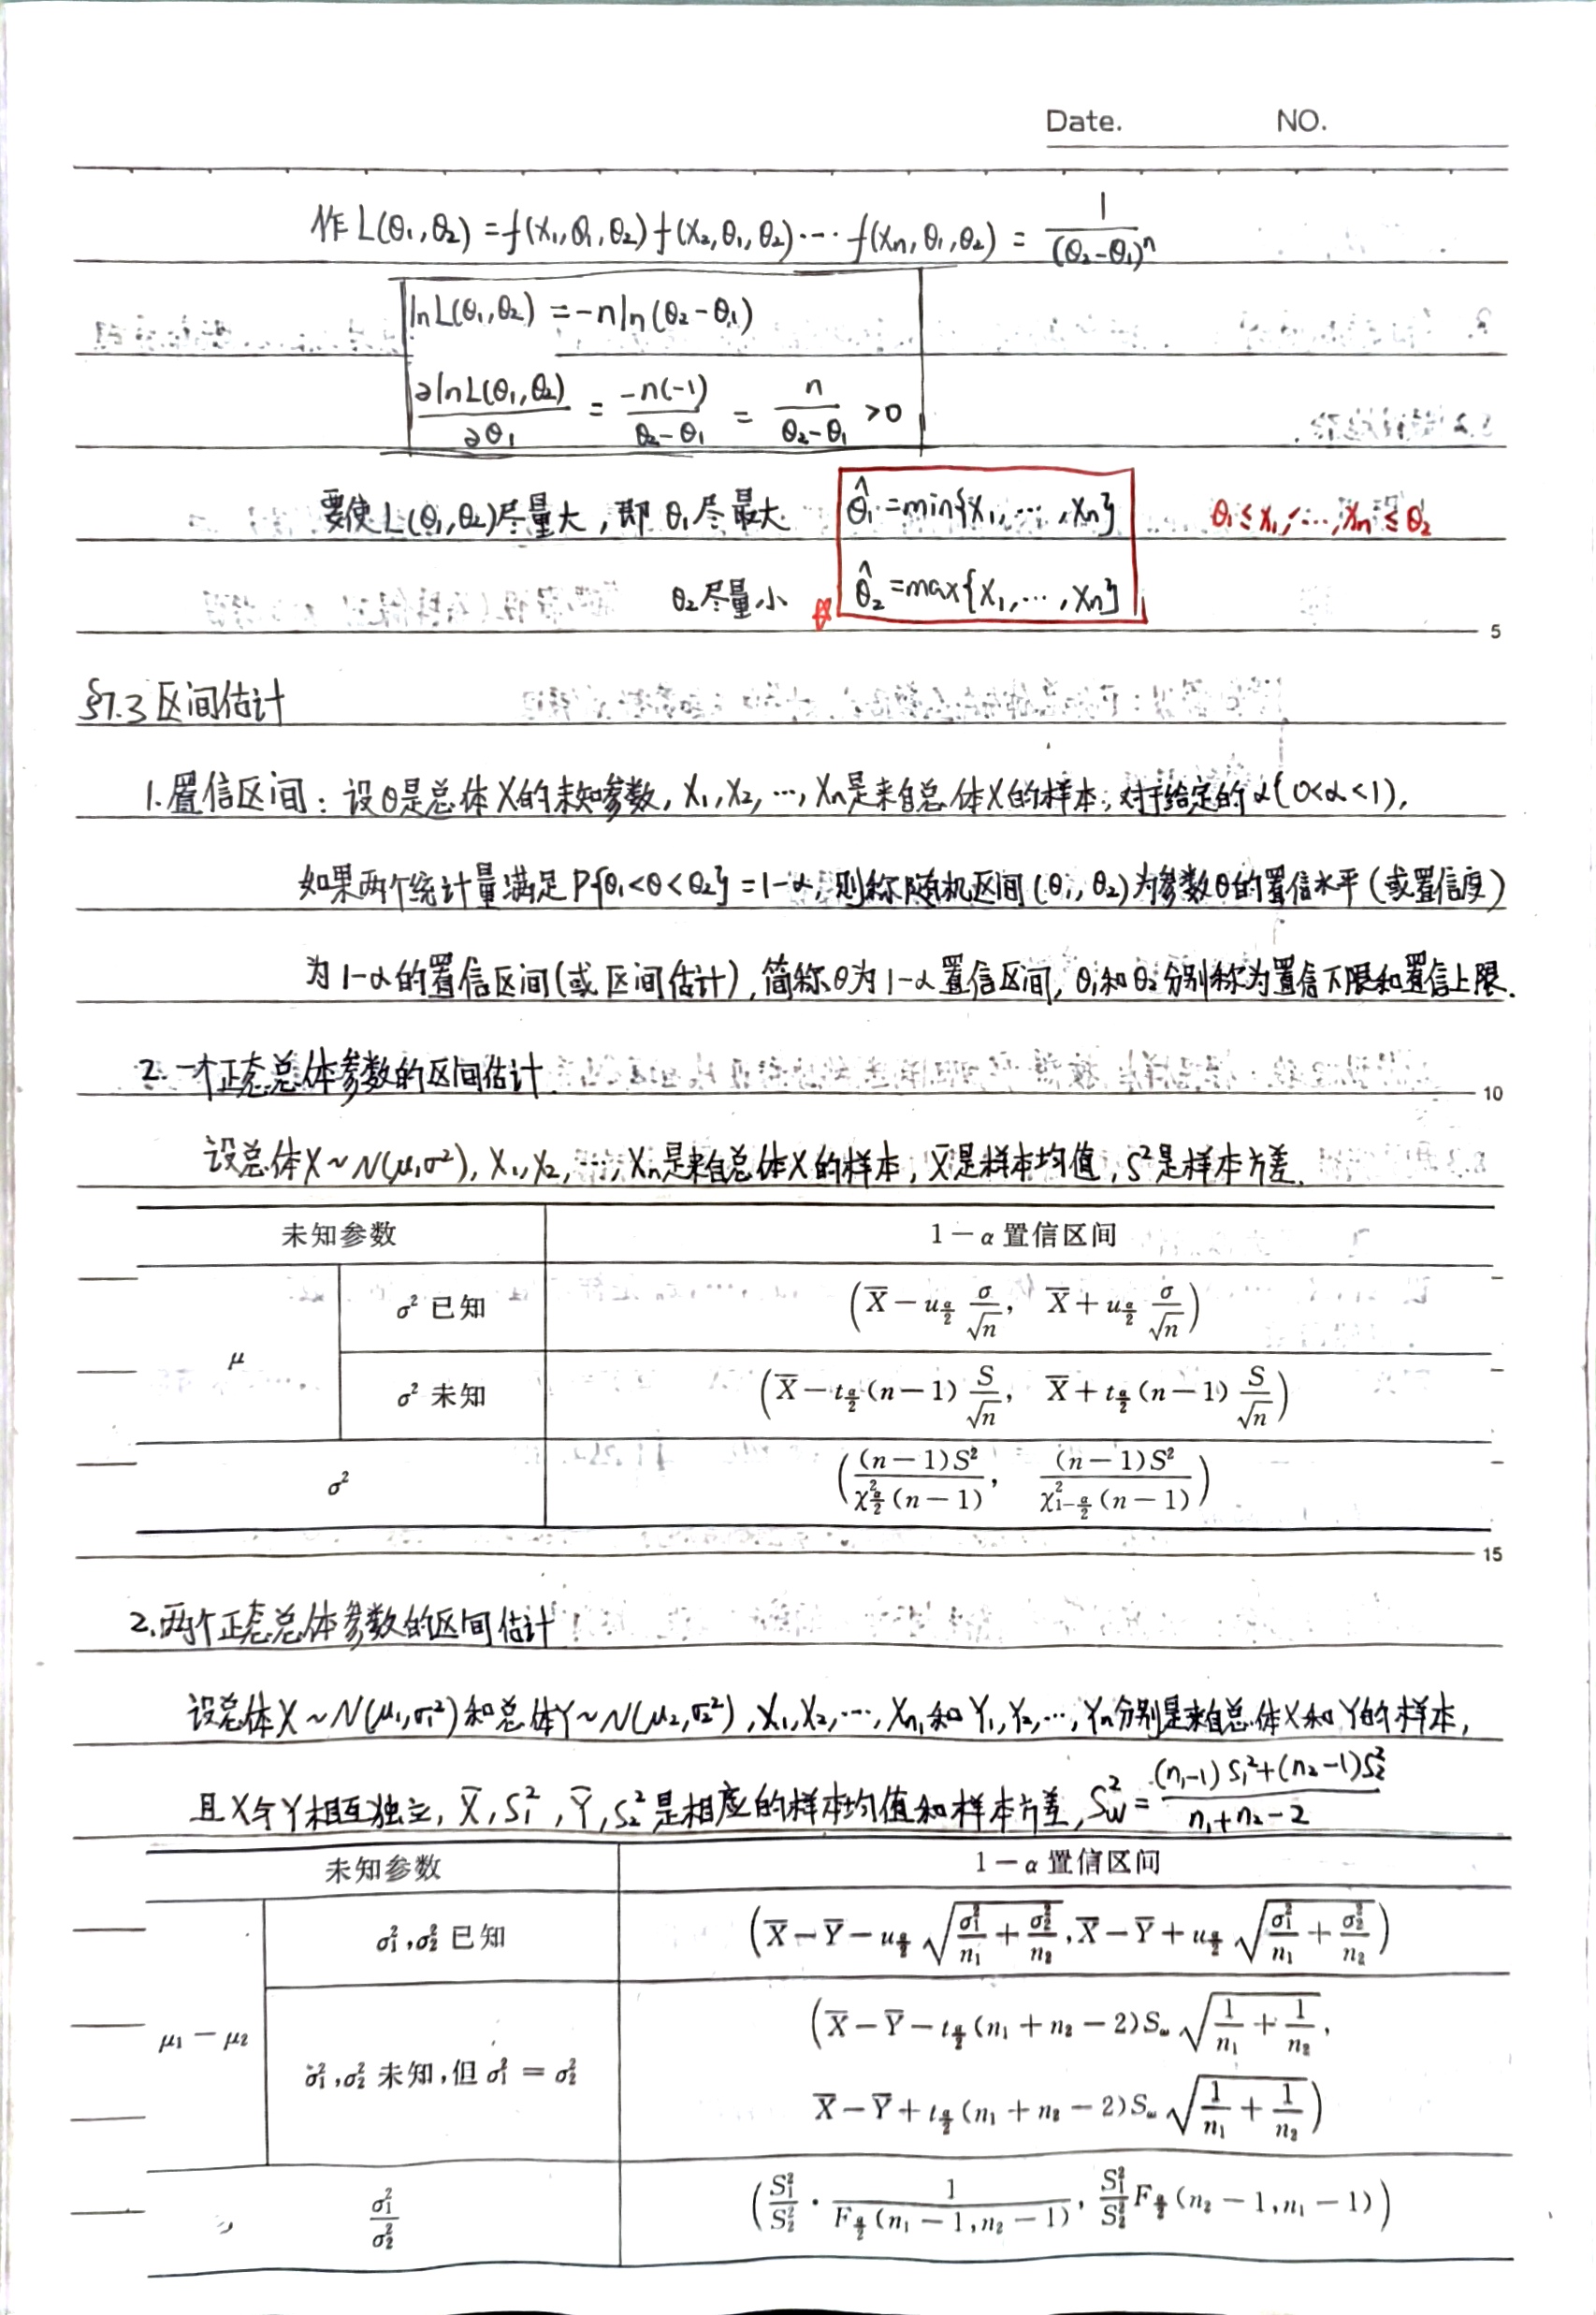 Date. NO.
作 L(θ₁,θ₂) = f(x₁,θ₁,θ₂) f(x₂,θ₁,θ₂) ⋯ f(xₙ,θ₁,θ₂) = 1/(θ₂-θ₁)ⁿ
lnL(θ₁,θ₂) = -n ln(θ₂-θ₁)
∂lnL(θ₁,θ₂)/∂θ₁ = -n(-1)/(θ₂-θ₁) = n/(θ₂-θ₁) >0
要使L(θ₁,θ₂)尽量大,即 θ₁尽最大 θ̂₁=min{X₁,⋯,Xₙ} θ₁≤x₁,⋯,xₙ≤θ₂
θ₂尽量小 θ̂₂=max{X₁,⋯,Xₙ}
5
§7.3 区间估计
1.置信区间:设θ是总体X的未知参数,X₁,X₂,⋯,Xₙ是来自总体X的样本,对于给定的α(0<α<1),
如果两个统计量满足P{θ₁<θ<θ₂}=1-α,则称随机区间(θ₁,θ₂)为参数θ的置信水平(或置信度)
为1-α的置信区间(或区间估计),简称θ为1-α置信区间,θ₁和θ₂分别称为置信下限和置信上限.
2.一个正态总体参数的区间估计.
10
设总体X~N(μ,σ²),X₁,X₂,⋯,Xₙ是来自总体X的样本,X̄是样本均值,S²是样本方差.
未知参数 1-α 置信区间
μ σ² 已知 (X̄-u_{α/2} σ/√n, X̄+u_{α/2} σ/√n)
σ² 未知 (X̄-t_{α/2}(n-1) S/√n, X̄+t_{α/2}(n-1) S/√n)
σ² ((n-1)S²/χ²_{α/2}(n-1), (n-1)S²/χ²_{1-α/2}(n-1))
15
2.两个正态总体参数的区间估计
设总体X~N(μ₁,σ₁²)和总体Y~N(μ₂,σ₂²),X₁,X₂,⋯,Xn₁和Y₁,Y₂,⋯,Yn分别是来自总体X和Y的样本,
且X与Y相互独立,X̄,S₁²,Ȳ,S₂²是相应的样本均值和样本方差,S_w²=((n₁-1)S₁²+(n₂-1)S₂²)/(n₁+n₂-2)
未知参数 1-α 置信区间
σ₁²,σ₂² 已知 (X̄-Ȳ-u_{α/2}√(σ₁²/n₁+σ₂²/n₂),X̄-Ȳ+u_{α/2}√(σ₁²/n₁+σ₂²/n₂))
μ₁-μ₂ σ₁²,σ₂² 未知,但 σ₁²=σ₂² (X̄-Ȳ-t_{α/2}(n₁+n₂-2)S_ω√(1/n₁+1/n₂),
X̄-Ȳ+t_{α/2}(n₁+n₂-2)S_ω√(1/n₁+1/n₂))
σ₁²/σ₂² (S₁²/S₂²·1/F_{α/2}(n₁-1,n₂-1), S₁²/S₂² F_{α/2}(n₂-1,n₁-1))